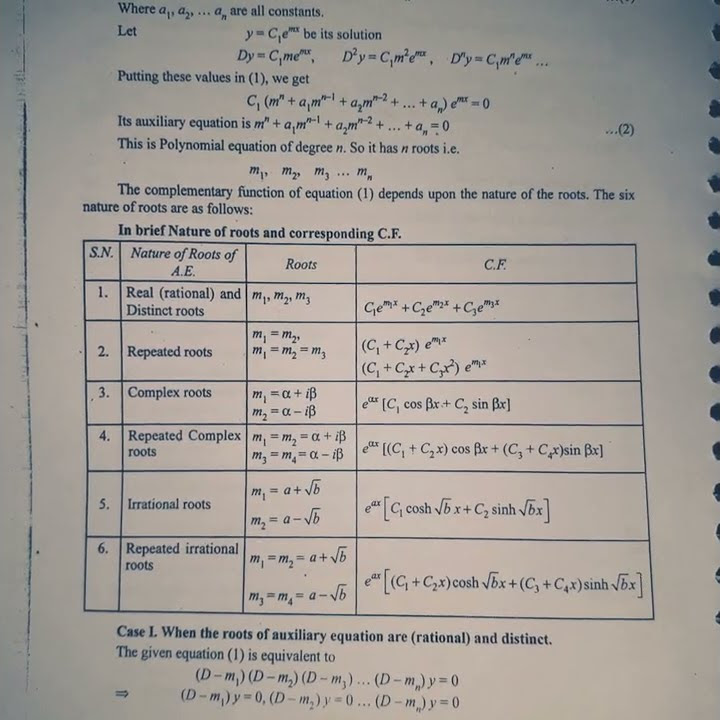 Where a₁, a₂, ... aₙ are all constants.
Let y = C₁eᵐˣ be its solution
Dy = C₁meᵐˣ, D²y = C₁m²eᵐˣ, Dⁿy = C₁mⁿeᵐˣ ...
Putting these values in (1), we get
C₁ (mⁿ + a₁mⁿ⁻¹ + a₂mⁿ⁻² + ... + aₙ) eᵐˣ = 0
Its auxiliary equation is mⁿ + a₁mⁿ⁻¹ + a₂mⁿ⁻² + ... + aₙ = 0 ...(2)
This is Polynomial equation of degree n. So it has n roots i.e.
m₁, m₂, m₃ ... mₙ
The complementary function of equation (1) depends upon the nature of the roots. The six
nature of roots are as follows:
In brief Nature of roots and corresponding C.F.
S.N. Nature of Roots of Roots C.F.
A.E.
1. Real (rational) and m₁, m₂, m₃ C₁e^{m₁x} + C₂e^{m₂x} + C₃e^{m₃x}
Distinct roots
2. Repeated roots m₁ = m₂, (C₁ + C₂x) e^{m₁x}
m₁ = m₂ = m₃ (C₁ + C₂x + C₃x²) e^{m₁x}
3. Complex roots m₁ = α + iβ e^{αx} [C₁ cos βx + C₂ sin βx]
m₂ = α − iβ
4. Repeated Complex m₁ = m₂ = α + iβ e^{αx} [(C₁ + C₂x) cos βx + (C₃ + C₄x)sin βx]
roots m₃ = m₄ = α − iβ
5. Irrational roots m₁ = a + √b e^{ax} [C₁ cosh √b x + C₂ sinh √bx]
m₂ = a − √b
6. Repeated irrational m₁ = m₂ = a + √b e^{ax} [(C₁ + C₂x)cosh √bx + (C₃ + C₄x)sinh √bx]
roots m₃ = m₄ = a − √b
Case I. When the roots of auxiliary equation are (rational) and distinct.
The given equation (1) is equivalent to
(D − m₁) (D − m₂) (D − m₃) ... (D − mₙ) y = 0
⇒ (D − m₁) y = 0, (D − m₂) y = 0 ... (D − mₙ) y = 0